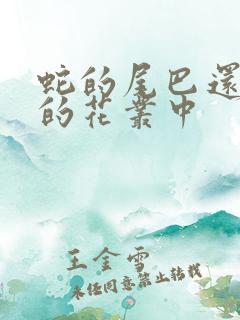 蛇的尾巴還
的花叢中
王金雪
未经同意禁止转载